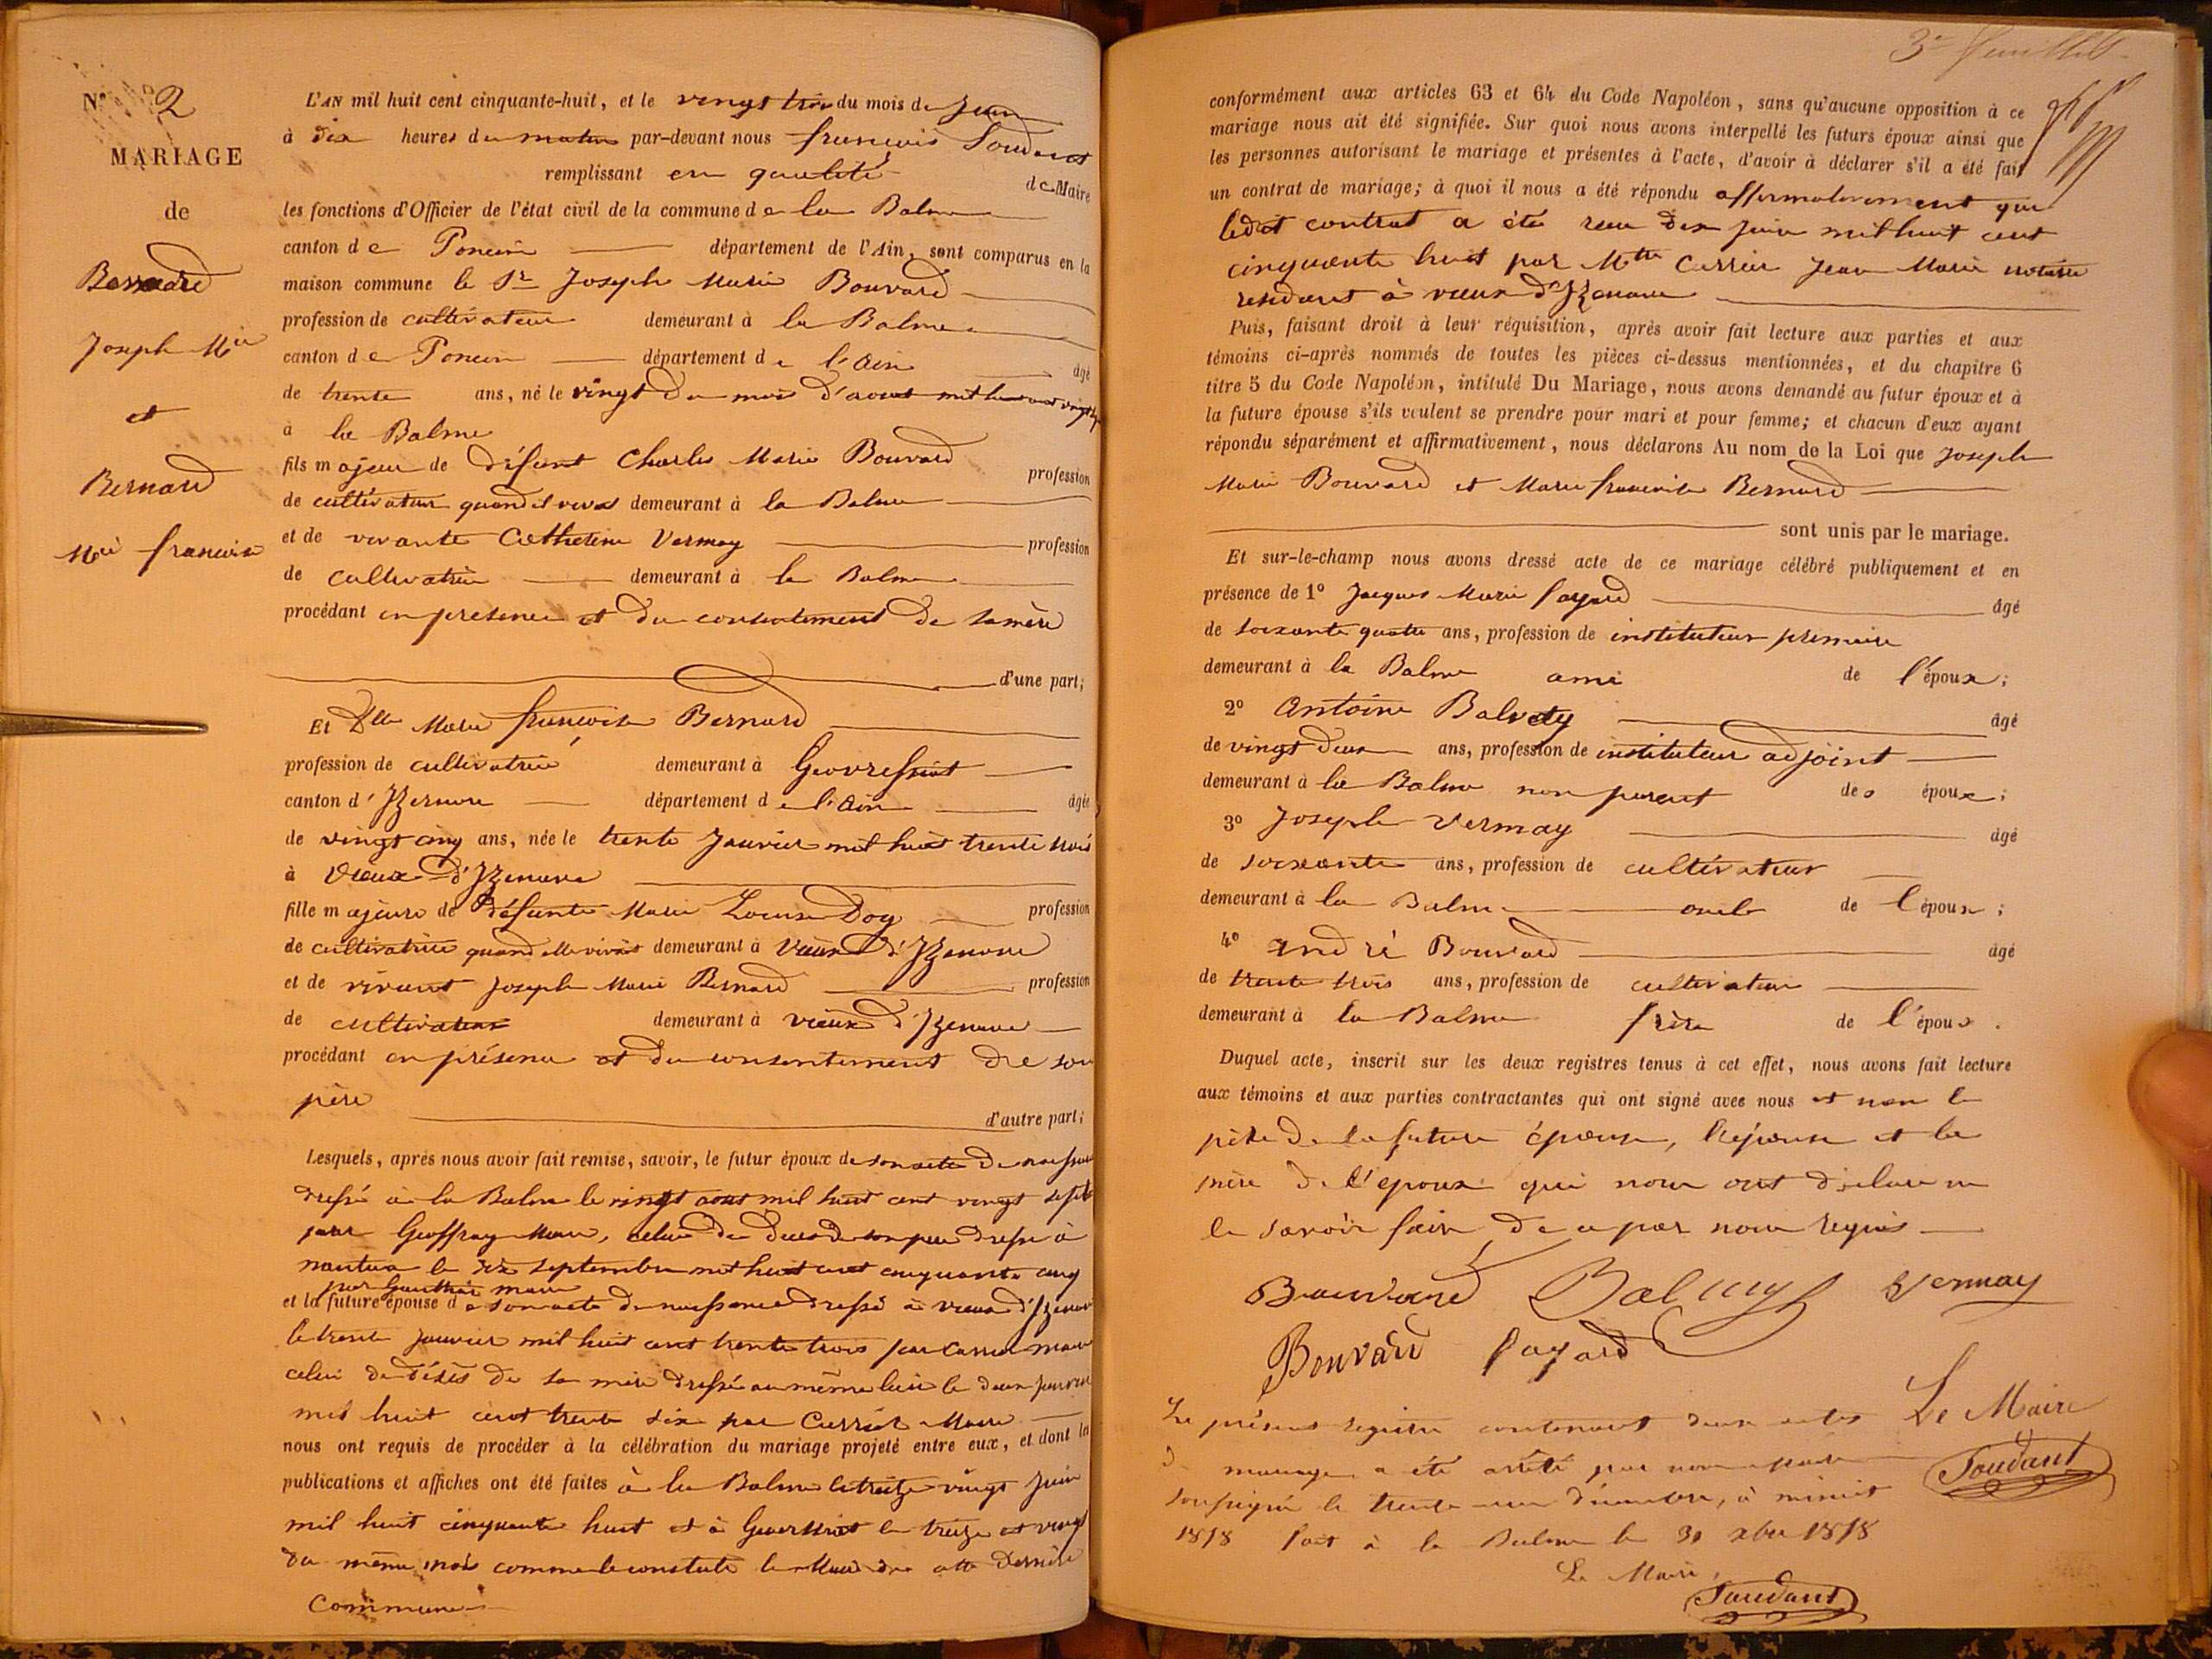 N° 2
MARIAGE
de
Bouvard
Joseph Mie
et
Bernard
Mie francoise
L'AN mil huit cent cinquante-huit, et le vingt trois du mois de Juin
à dix heures du matin par-devant nous francois Soudant
remplissant en qualité de Maire
les fonctions d'Officier de l'état civil de la commune de la Balme
canton de Poncin département de l'Ain, sont comparus en la
maison commune le Sr Joseph Marie Bouvard
profession de cultivateur demeurant à la Balme
canton de Poncin département de l'Ain âgé
de trente ans, né le vingt du mois d'aout mil huit cent vingt sept
à la Balme
fils majeur de défunt Charles Marie Bouvard profession
de cultivateur quand il vivait demeurant à la Balme
et de vivante Catherine Vermay profession
de cultivatrice demeurant à la Balme
procédant en présence et du consentement de sa mère
d'une part;
Et Dlle Marie francoise Bernard
profession de cultivatrice demeurant à Geovressiat
canton d'Izernore département de l'Ain âgée
de vingt cinq ans, née le trente Janvier mil huit trente trois
à Vieux d'Izenave
fille majeure de défunte Marie Louise Doy profession
de cultivatrice quand elle vivait demeurant à Vieux d'Izenave
et de vivant Joseph Marie Bernard profession
de cultivateur demeurant à vieux d'Izenave
procédant en présence et du consentement de son
père
d'autre part;
Lesquels, après nous avoir fait remise, savoir, le futur époux de son acte de naissance
dressé à la Balme le vingt aout mil huit cent vingt sept
par Geoffray Maire, celui de décès de son père dressé à
nantua le dix septembre mil huit cent cinquante cinq
par Gauthier maire
et la future épouse de son acte de naissance dressé à vieux d'Izenave
le trente janvier mil huit cent trente trois par Carrier maire
celui de décès de sa mère dressé au même lieu le deux janvier
mil huit cent trente six par Carrier Maire
nous ont requis de procéder à la célébration du mariage projeté entre eux, et dont la
publications et affiches ont été faites à la Balme le treize vingt Juin
mil huit cinquante huit et à Geovressiat le treize et vingt
du même mois comme le constate le Maire de cette dernière
commune
3e feuillet
conformément aux articles 63 et 64 du Code Napoléon, sans qu'aucune opposition à ce
mariage nous ait été signifiée. Sur quoi nous avons interpellé les futurs époux ainsi que
les personnes autorisant le mariage et présentes à l'acte, d'avoir à déclarer s'il a été fait
un contrat de mariage; à quoi il nous a été répondu affirmativement que
ledit contrat a été recu dix juin mil huit cent
cinquante huit par Mtre Carrier Jean Marie notaire
résidant à vieux d'Izenave
Puis, faisant droit à leur réquisition, après avoir fait lecture aux parties et aux
témoins ci-après nommés de toutes les pièces ci-dessus mentionnées, et du chapitre 6
titre 5 du Code Napoléon, intitulé Du Mariage, nous avons demandé au futur époux et à
la future épouse s'ils veulent se prendre pour mari et pour femme; et chacun d'eux ayant
répondu séparément et affirmativement, nous déclarons Au nom de la Loi que Joseph
Marie Bouvard et Marie francoise Bernard
sont unis par le mariage.
Et sur-le-champ nous avons dressé acte de ce mariage célébré publiquement et en
présence de 1° Jacques Marie Payard âgé
de soixante quatre ans, profession de instituteur primaire
demeurant à la Balme ami de l'époux;
2° Antoine Balvay âgé
de vingt deux ans, profession de instituteur adjoint
demeurant à la Balme non parent des époux;
3° Joseph Vermay âgé
de soixante ans, profession de cultivateur
demeurant à la Balme oncle de l'époux;
4° André Bouvard âgé
de trente trois ans, profession de cultivateur
demeurant à la Balme frère de l'époux.
Duquel acte, inscrit sur les deux registres tenus à cet effet, nous avons fait lecture
aux témoins et aux parties contractantes qui ont signé avec nous et non le
père de la future épouse, l'épouse et la
mère de l'époux qui nous ont déclaré ne
le savoir faire de ce par nous requis
Bouvard Balvay Vermay
Bouvard Payard
Le présent registre contenant deux actes Le Maire
de mariage a été arrêté par nous maire Soudant
soussigné le trente un décembre, à minuit
1858 fait à la Balme le 31 xbre 1858
Le Maire,
Soudant